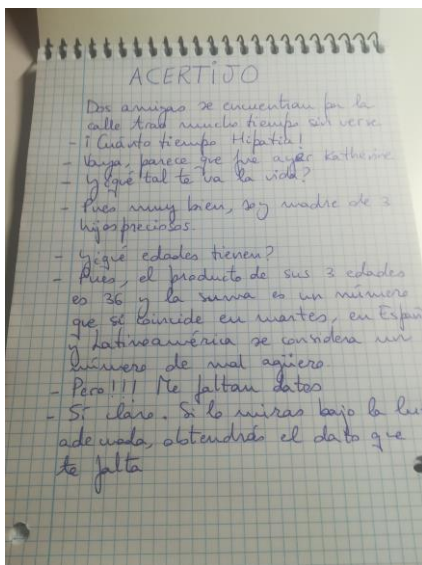 ACERTIJO
Dos amigas se encuentran por la
calle tras mucho tiempo sin verse
- ¡Cuánto tiempo Hipatia!
- Vaya, parece que fue ayer Katherine
- y ¿qué tal te va la vida?
- Pues muy bien, soy madre de 3
hijos preciosos.
- y ¿qué edades tienen?
- Pues, el producto de sus 3 edades
es 36 y la suma es un número
que si coincide en martes, en Españ
y Latinoamérica se considera un
número de mal agüero.
- Pero!!! Me faltan datos
- Sí claro. Si lo miras bajo la lu
adecuada, obtendrás el dato que
te falta